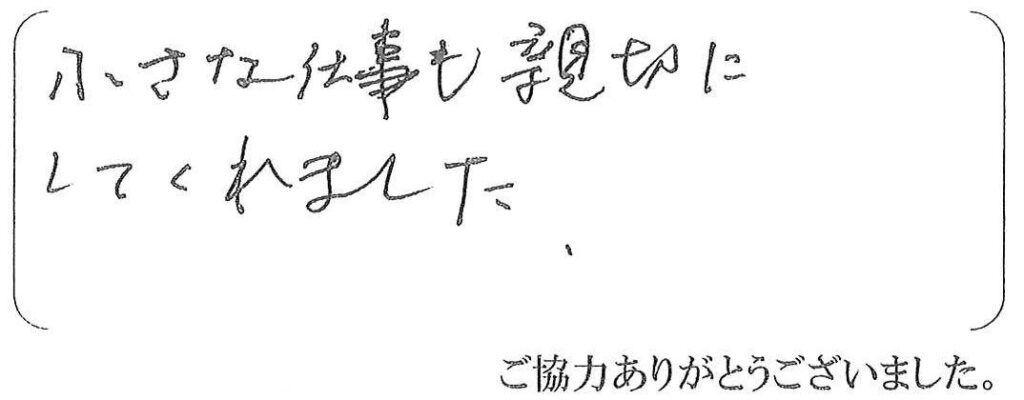 小さな仕事も親切に
してくれました、
ご協力ありがとうございました。